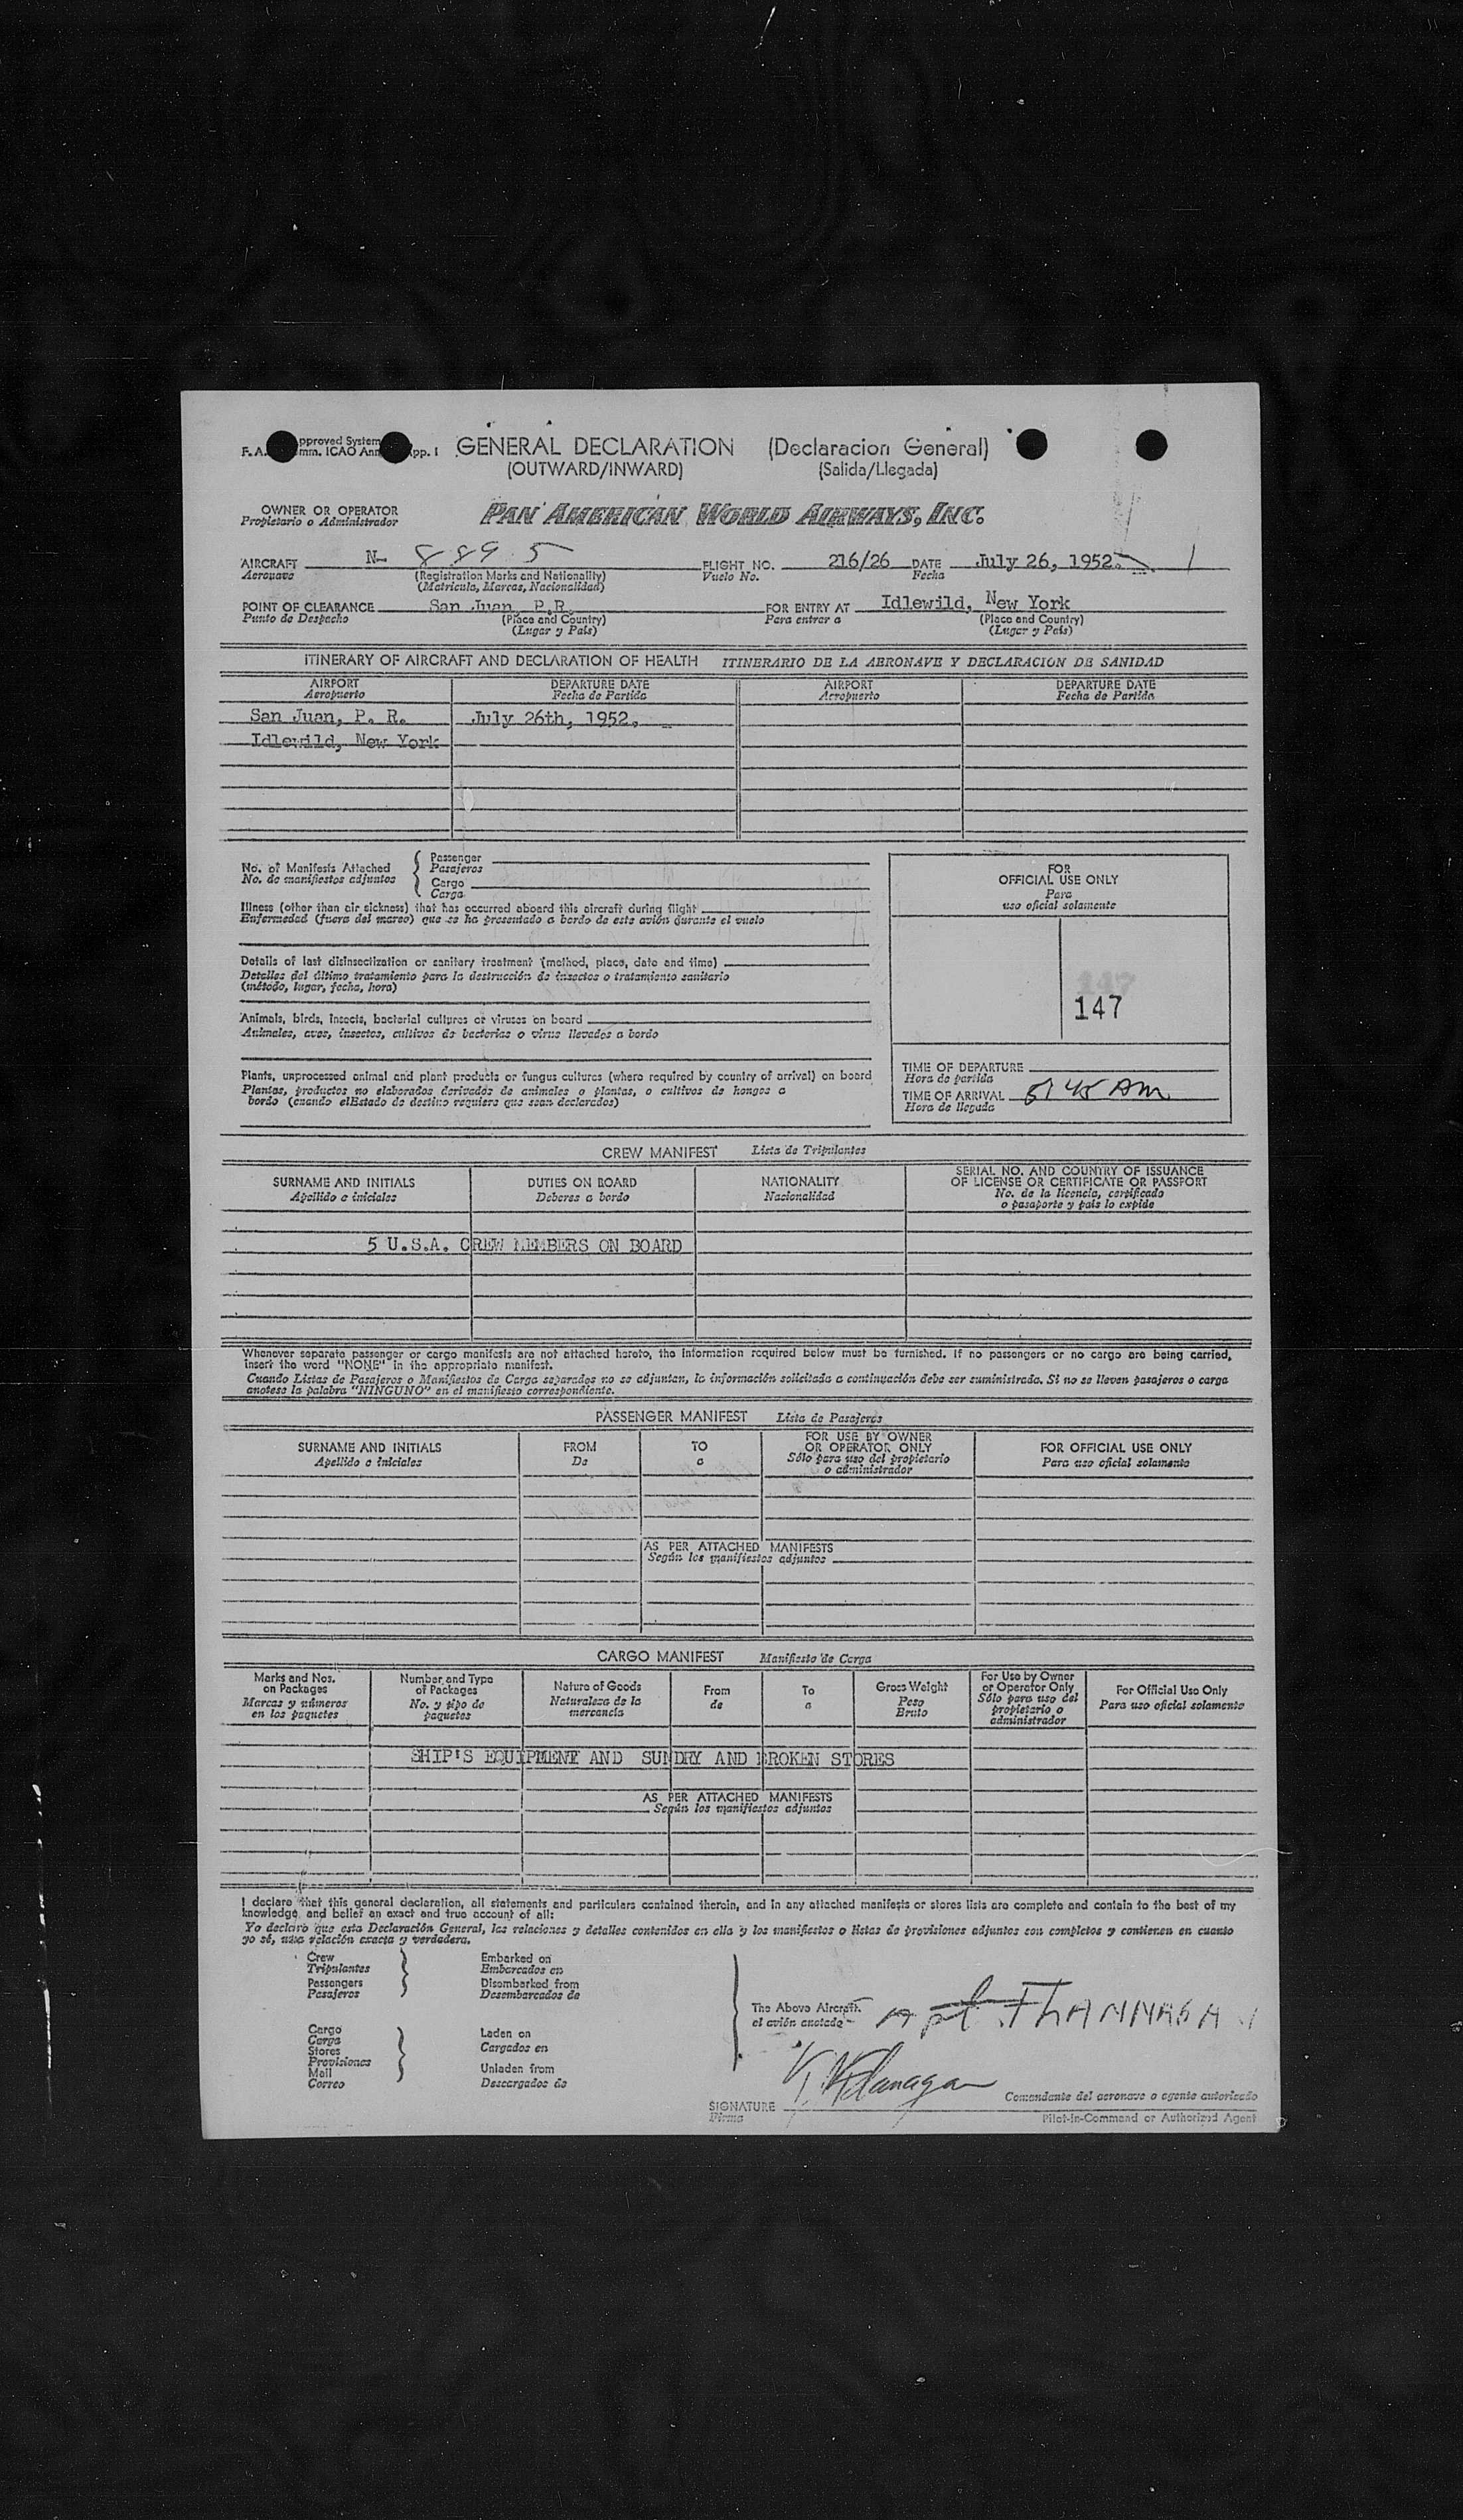 pproved System
F. A. mm. ICAO Ann pp. 1
GENERAL DECLARATION (Declaracion General)
(OUTWARD/INWARD) (Salida/Llegada)
OWNER OR OPERATOR
Propietario o Administrador
PAN AMERICAN WORLD AIRWAYS, INC.
AIRCRAFT N- 8895 FLIGHT NO. 216/26 DATE July 26, 1952. 1
Aeronave (Registration Marks and Nationality) Vuelo No. Fecha
(Matricula, Marcas, Nacionalidad)
POINT OF CLEARANCE San Juan, P.R. FOR ENTRY AT Idlewild, New York
Punto de Despacho (Place and Country) Para entrar a (Place and Country)
(Lugar y País) (Lugar y País)
ITINERARY OF AIRCRAFT AND DECLARATION OF HEALTH ITINERARIO DE LA AERONAVE Y DECLARACION DE SANIDAD
AIRPORT DEPARTURE DATE AIRPORT DEPARTURE DATE
Aeropuerto Fecha de Partida Aeropuerto Fecha de Partida
San Juan, P. R. July 26th, 1952.
Idlewild, New York
No. of Manifests Attached Passenger
No. de manifiestos adjuntos Pasajeros
Cargo
Carga
Illness (other than air sickness) that has occurred aboard this aircraft during flight
Enfermedad (fuera del mareo) que se ha presentado a bordo de este avión durante el vuelo
Details of last disinsectization or sanitary treatment (method, place, date and time)
Detalles del último tratamiento para la destrucción de insectos o tratamiento sanitario
(método, lugar, fecha, hora)
Animals, birds, insects, bacterial cultures or viruses on board
Animales, aves, insectos, cultivos de bacterias o virus llevados a bordo
Plants, unprocessed animal and plant products or fungus cultures (where required by country of arrival) on board
Plantas, productos no elaborados derivados de animales o plantas, o cultivos de hongos a
bordo (cuando elEstado de destino requiera que sean declarados)
FOR
OFFICIAL USE ONLY
Para
uso oficial solamente
147
147
TIME OF DEPARTURE
Hora de partida
TIME OF ARRIVAL 5:45 AM
Hora de llegada
CREW MANIFEST Lista de Tripulantes
SURNAME AND INITIALS DUTIES ON BOARD NATIONALITY SERIAL NO. AND COUNTRY OF ISSUANCE
OF LICENSE OR CERTIFICATE OR PASSPORT
Apellido e iniciales Deberes a bordo Nacionalidad No. de la licencia, certificado
o pasaporte y país lo expide
5 U.S.A. CREW MEMBERS ON BOARD
Whenever separate passenger or cargo manifests are not attached hereto, the information required below must be furnished. If no passengers or no cargo are being carried,
insert the word "NONE" in the appropriate manifest.
Cuando Listas de Pasajeros o Manifiestos de Carga separados no se adjuntan, la información solicitada a continuación debe ser suministrada. Si no se lleven pasajeros o carga
anotese la palabra "NINGUNO" en el manifiesto correspondiente.
PASSENGER MANIFEST Lista de Pasajeros
SURNAME AND INITIALS FROM TO FOR USE BY OWNER
OR OPERATOR ONLY FOR OFFICIAL USE ONLY
Apellido e iniciales De a Sólo para uso del propietario
o administrador Para uso oficial solamente
AS PER ATTACHED MANIFESTS
Según los manifiestos adjuntos
CARGO MANIFEST Manifiesto de Carga
Marks and Nos.
on Packages
Marcas y números
en los paquetes
Number and Type
of Packages
No. y tipo de
paquetes
Nature of Goods
Naturaleza de la
mercancía
From
de
To
a
Gross Weight
Peso
Bruto
For Use by Owner
or Operator Only
Sólo para uso del
propietario o
administrador
For Official Use Only
Para uso oficial solamente
SHIP'S EQUIPMENT AND SUNDRY AND BROKEN STORES
AS PER ATTACHED MANIFESTS
Según los manifiestos adjuntos
I declare that this general declaration, all statements and particulars contained therein, and in any attached manifests or stores lists are complete and contain to the best of my
knowledge, and belief an exact and true account of all:
Yo declaro que esta Declaración General, las relaciones y detalles contenidos en ella y los manifiestos o listas de provisiones adjuntos con completos y contienen en cuanto
yo sé, una relación exacta y verdadera.
Crew Embarked on
Tripulantes Embarcados en
Passengers Disembarked from
Pasajeros Desembarcados de
The Above Aircraft
el avión anotado
Cargo Laden on
Carga Cargados en
Stores
Provisiones
Mail Unladen from
Correo Descargados de
V. Flanagan
SIGNATURE Comandante del aeronave o agente autorizado
Firma Pilot-in-Command or Authorized Agent